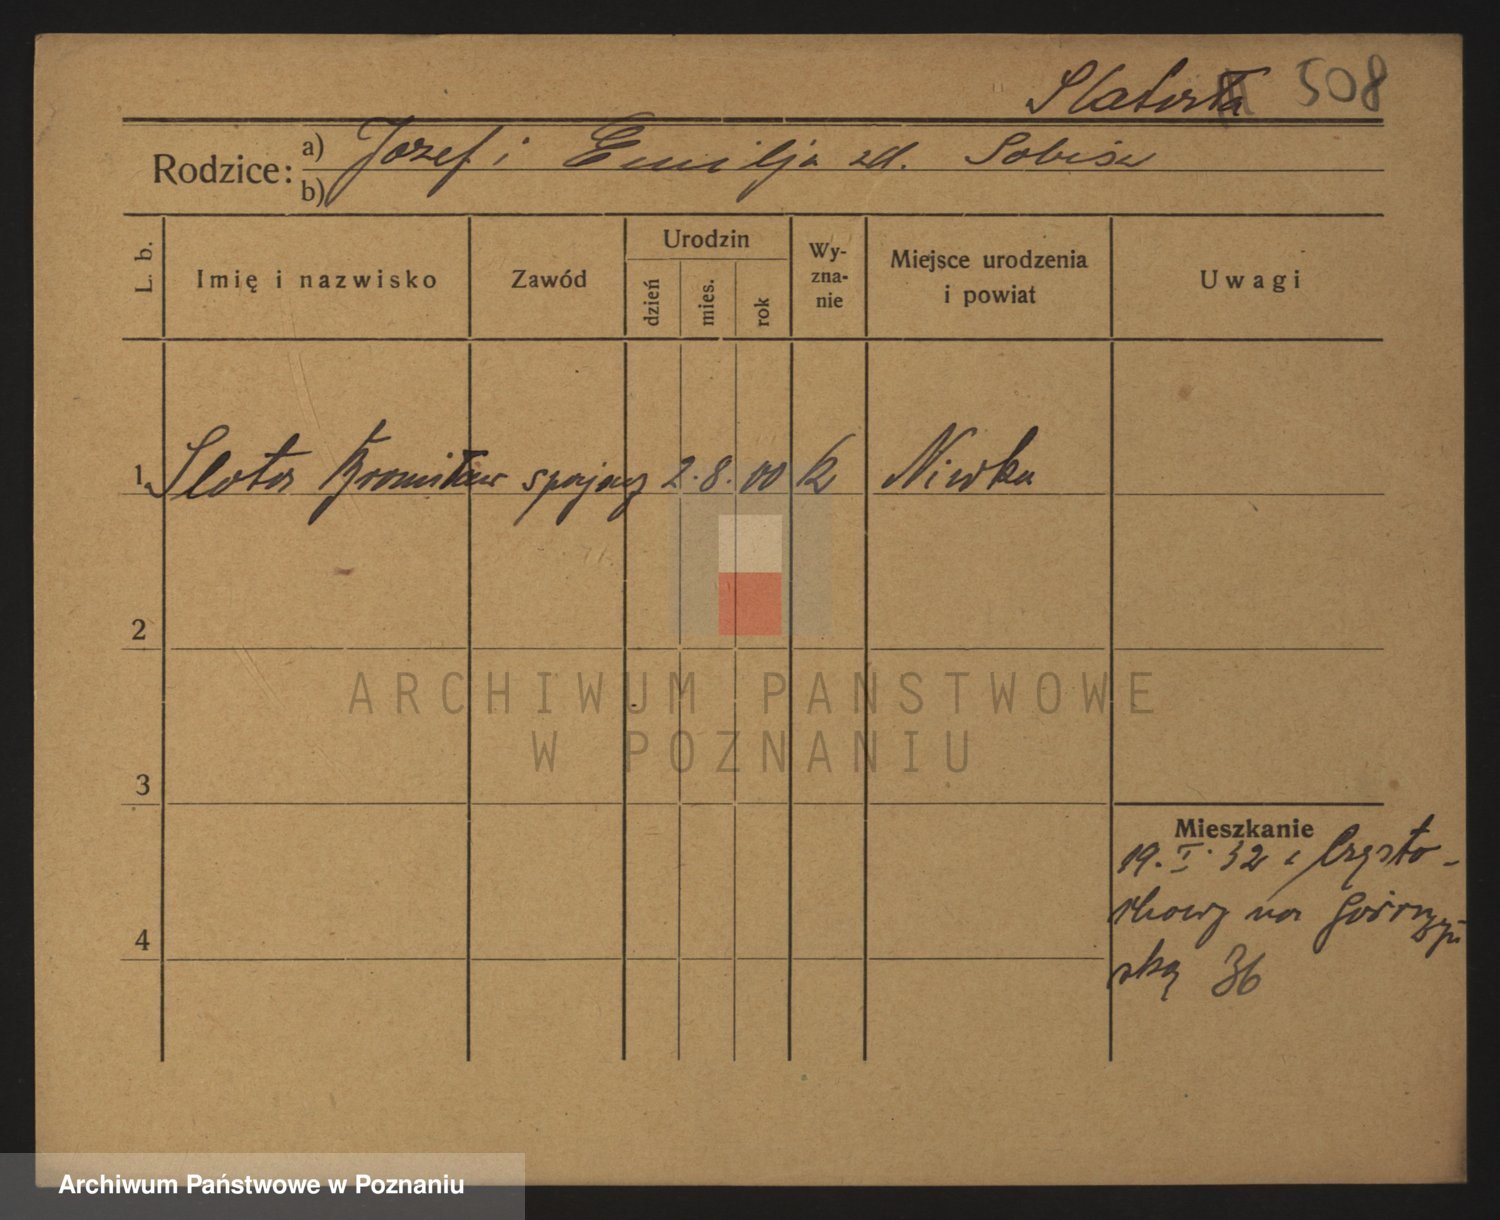 508
Rodzice: a) Józef i Emilja zd.
b)
L. b. Imię i nazwisko Zawód Urodzin dzień mies. rok Wy-zna-nie Miejsce urodzenia i powiat Uwagi
1. Slota Bronisław 2. 8. 00 k Niwka
2
3
Mieszkanie
19. I. 32 z Często-
chowy na
4
ską 36
ARCHIWUM PAŃSTWOWE
W POZNANIU
Archiwum Państwowe w Poznaniu